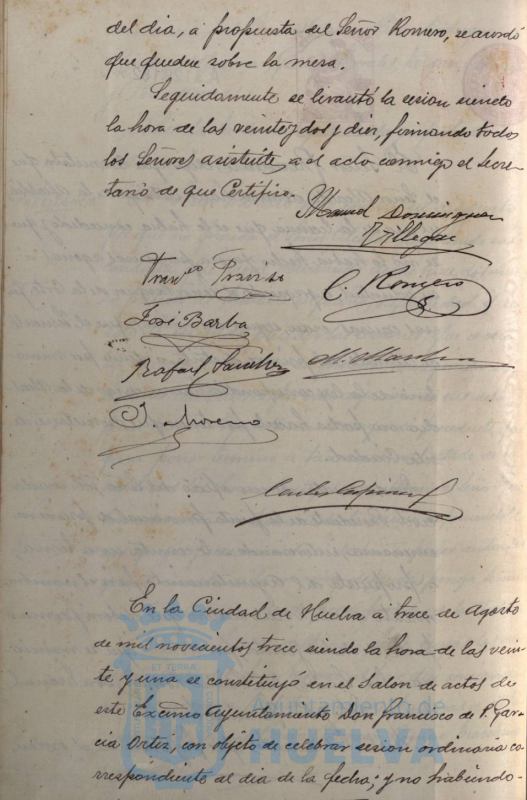 del dia, á propuesta del Señor Romero, se acordó
que quedue sobre la mesa.
Seguidamente se levantó la sesion siendo
la hora de las veintey dos y diez, firmando todos
los Señores asistentes a el acto conmigo el Secre-
tario de que Certifico.
Manuel Dominguez
Villegas
José Barba
C. Romero
Rafael Sanchez
J. Moreno
En la Ciudad de Huelva á trece de Agosto
de mil novecientos trece siendo la hora de las vein-
te y una se constituyó en el Salon de actos de
este Excmo Ayuntamiento Don Francisco de P. Gar-
cia Ortiz, con objeto de celebrar sesion ordinaria co-
rrespondiente al dia de la fecha; y no habiendo-
ET TERRA
Ayuntamiento de
HUELVA